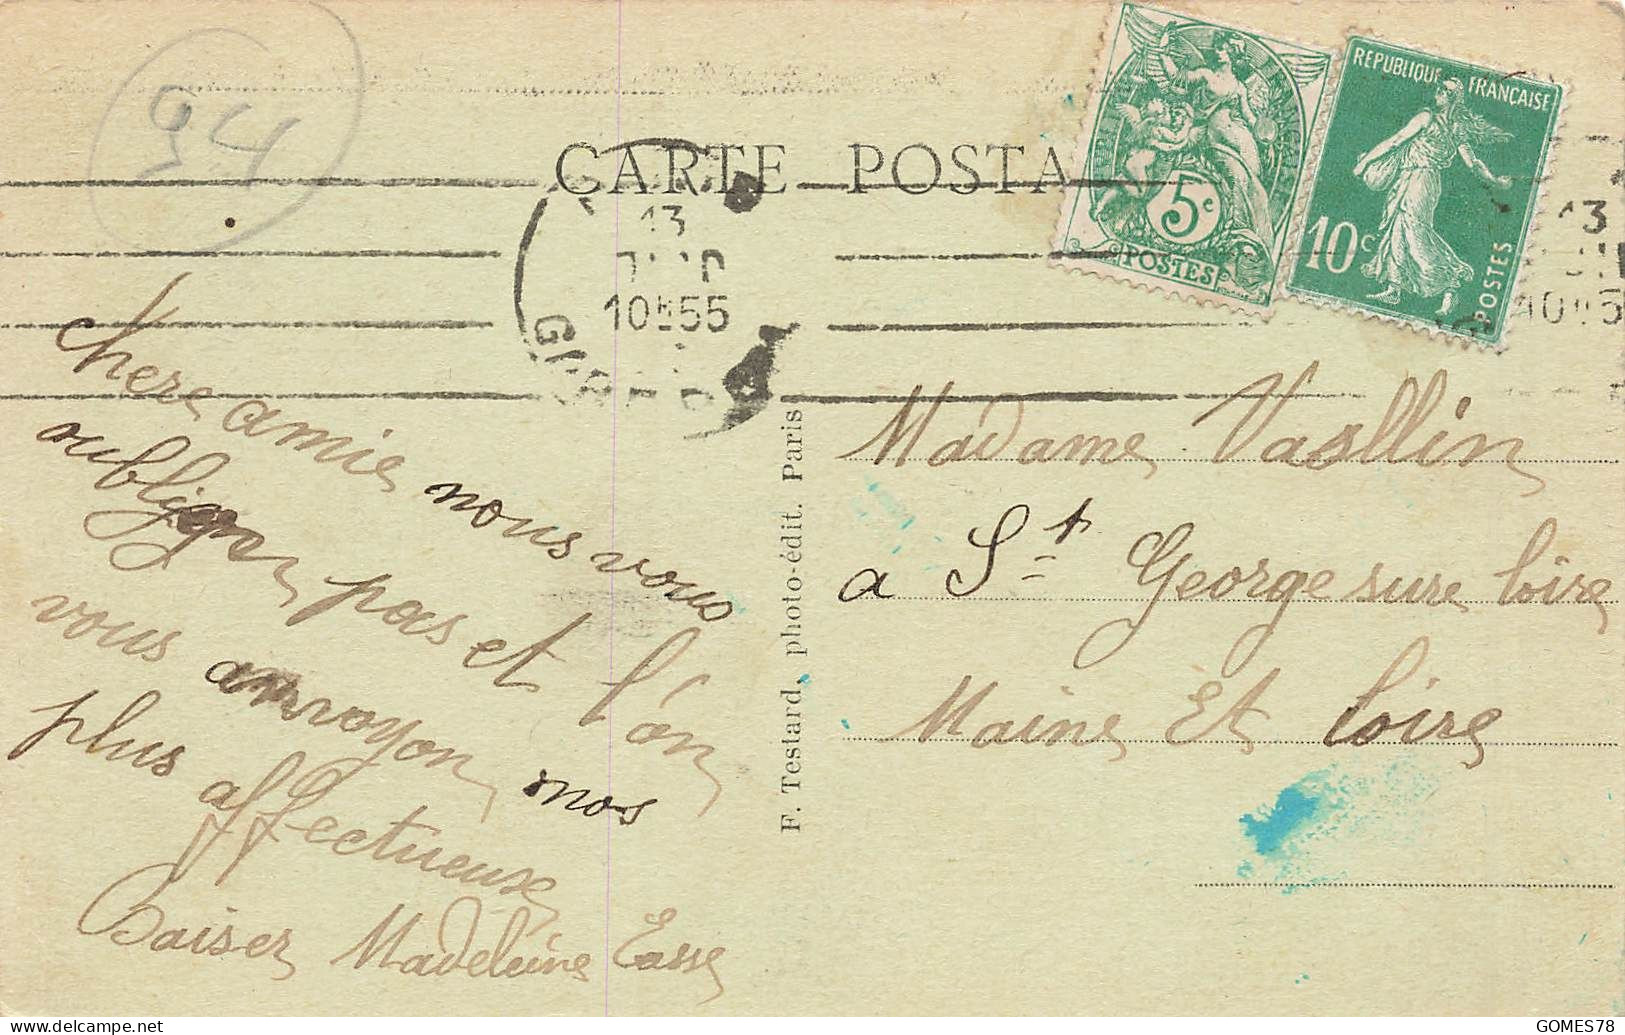 94
CARTE POSTA
5c
POSTES
REPUBLIQUE FRANÇAISE
10c
POSTES
13
10 55
13
Chere amie nous vous
oublijon pas et l'on
vous anvoyon nos
plus affectueuse
Baiser Madeleine Easse
F. Testard, photo-édit. Paris
Madame Vasllin
a St George sure loire
Maine Et loire
GOMES78